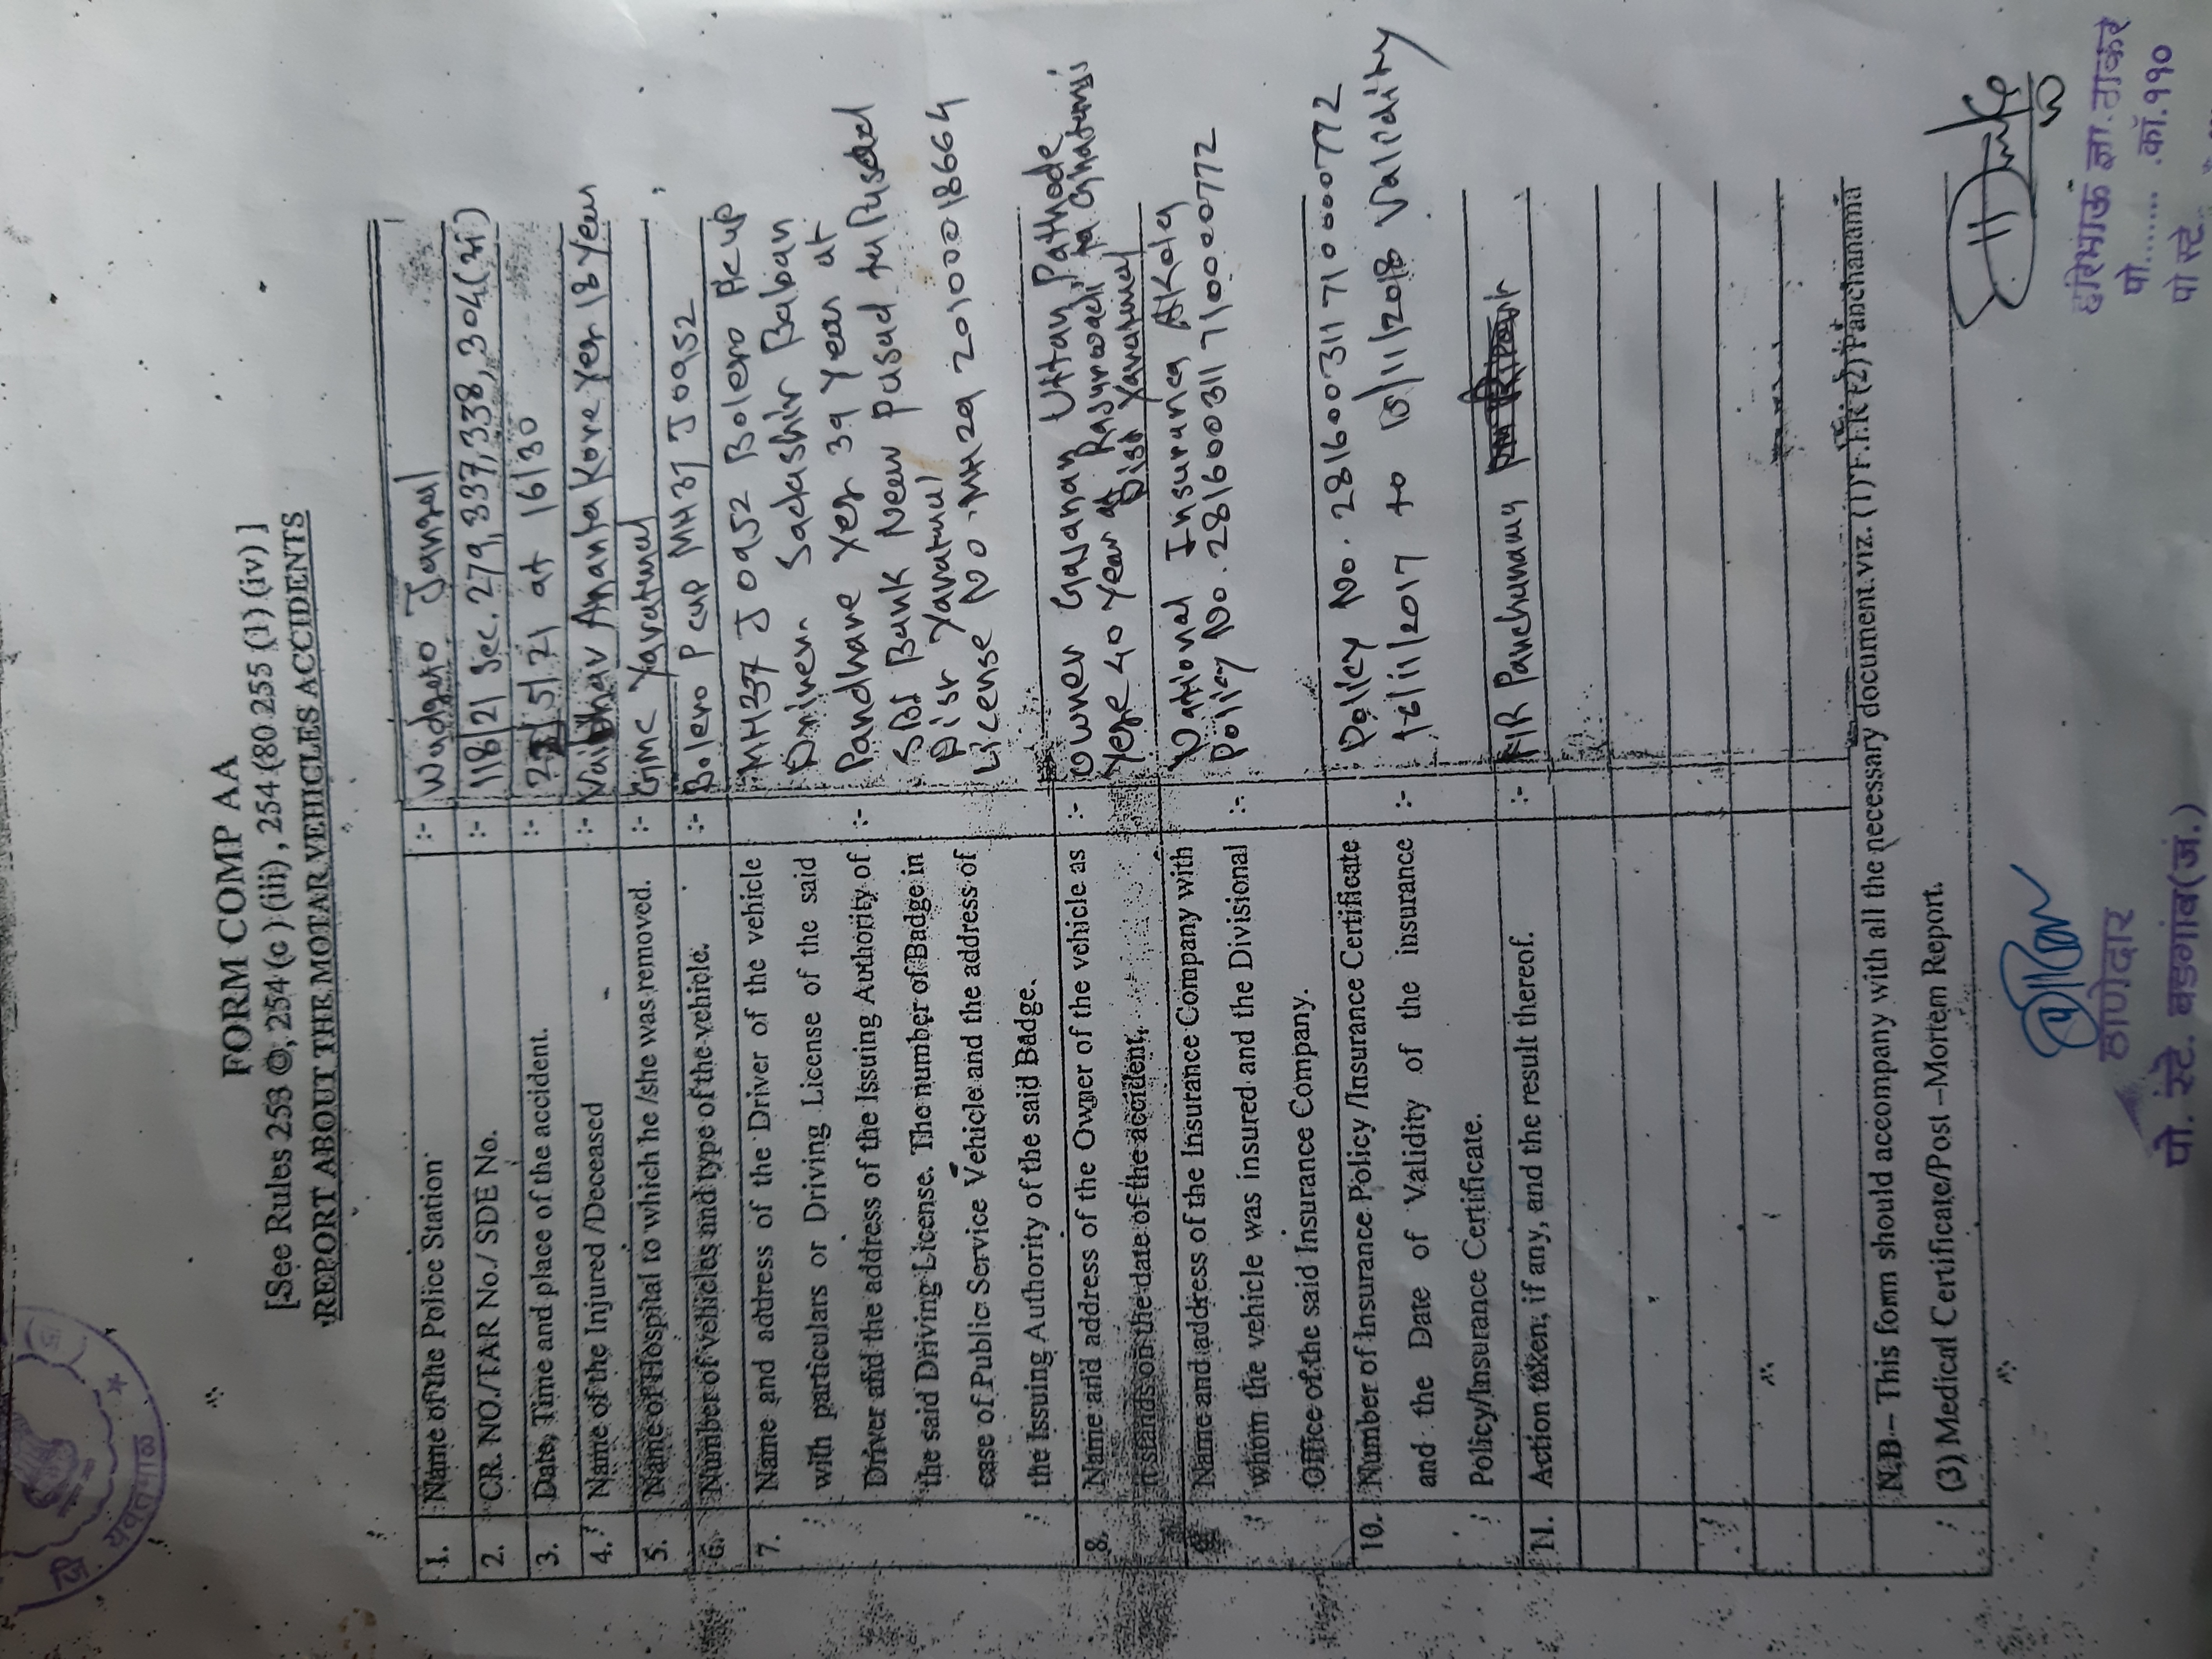 FORM COMP AA
[See Rules 253 ©, 254 (c ) (iii) , 254 (80 255 (1) (iv) ]
REPORT ABOUT THE MOTAR VEHICLES ACCIDENTS
1. Name of the Police Station :- Wadgao Jangal
2. CR. NO./TAR No./ SDE No. :- 118/21 Sec. 279, 337, 338, 304(अ)
3. Date, Time and place of the accident. :- /5/21 at 16/30
4. Name of the Injured /Deceased :- Vaibhav Ananta Kore Yer 18 Year
5. Name of Hospital to which he /she was removed. :- GMC Yavatmal
6. Number of vehicles and type of the vehicle. :- Bolero P cup MH 37 J 0952
7. Name and address of the Driver of the vehicle
with particulars or Driving License of the said
Driver and the address of the Issuing Authority of
the said Driving License. The number of Badge in
case of Public Service Vehicle and the address of
the Issuing Authority of the said Badge.
:- MH37 J 0952 Bolero Pcup
Driver. Sadashiv Baban
Pandhare Yer 39 Year at
SBI Bank Near Pusad ta Pusad
Dist Yavatmal
License No. MH29 20100018664
8. Name and address of the Owner of the vehicle as
it stands on the date of the accident.
:- Owner Gajanan Uttam Pathode
Yere 40 Year at Rajurwadi ta Ghatanji
Dist Yavatmal
9. Name and address of the Insurance Company with
whom the vehicle was insured and the Divisional
Office of the said Insurance Company.
:- National Insurance Akola
Policy No. 281600311710000772
10. Number of Insurance Policy /Insurance Certificate
and the Date of Validity of the insurance
Policy/Insurance Certificate.
:- Policy No. 281600311710000772
16/11/2017 to 15/11/2018 Validity
11. Action taken, if any, and the result thereof. :- FIR Panchunama
N.B – This form should accompany with all the necessary document.viz. (1) F.I.R (2) Panchanama
(3) Medical Certificate/Post –Mortem Report.
ठाणेदार
पो. स्टे. वडगांव(जं.)
हरिभाऊ ज्ञा. ठाकरे
पो........ .कॉ.११०
पो स्टे.
जि यवतमाळ